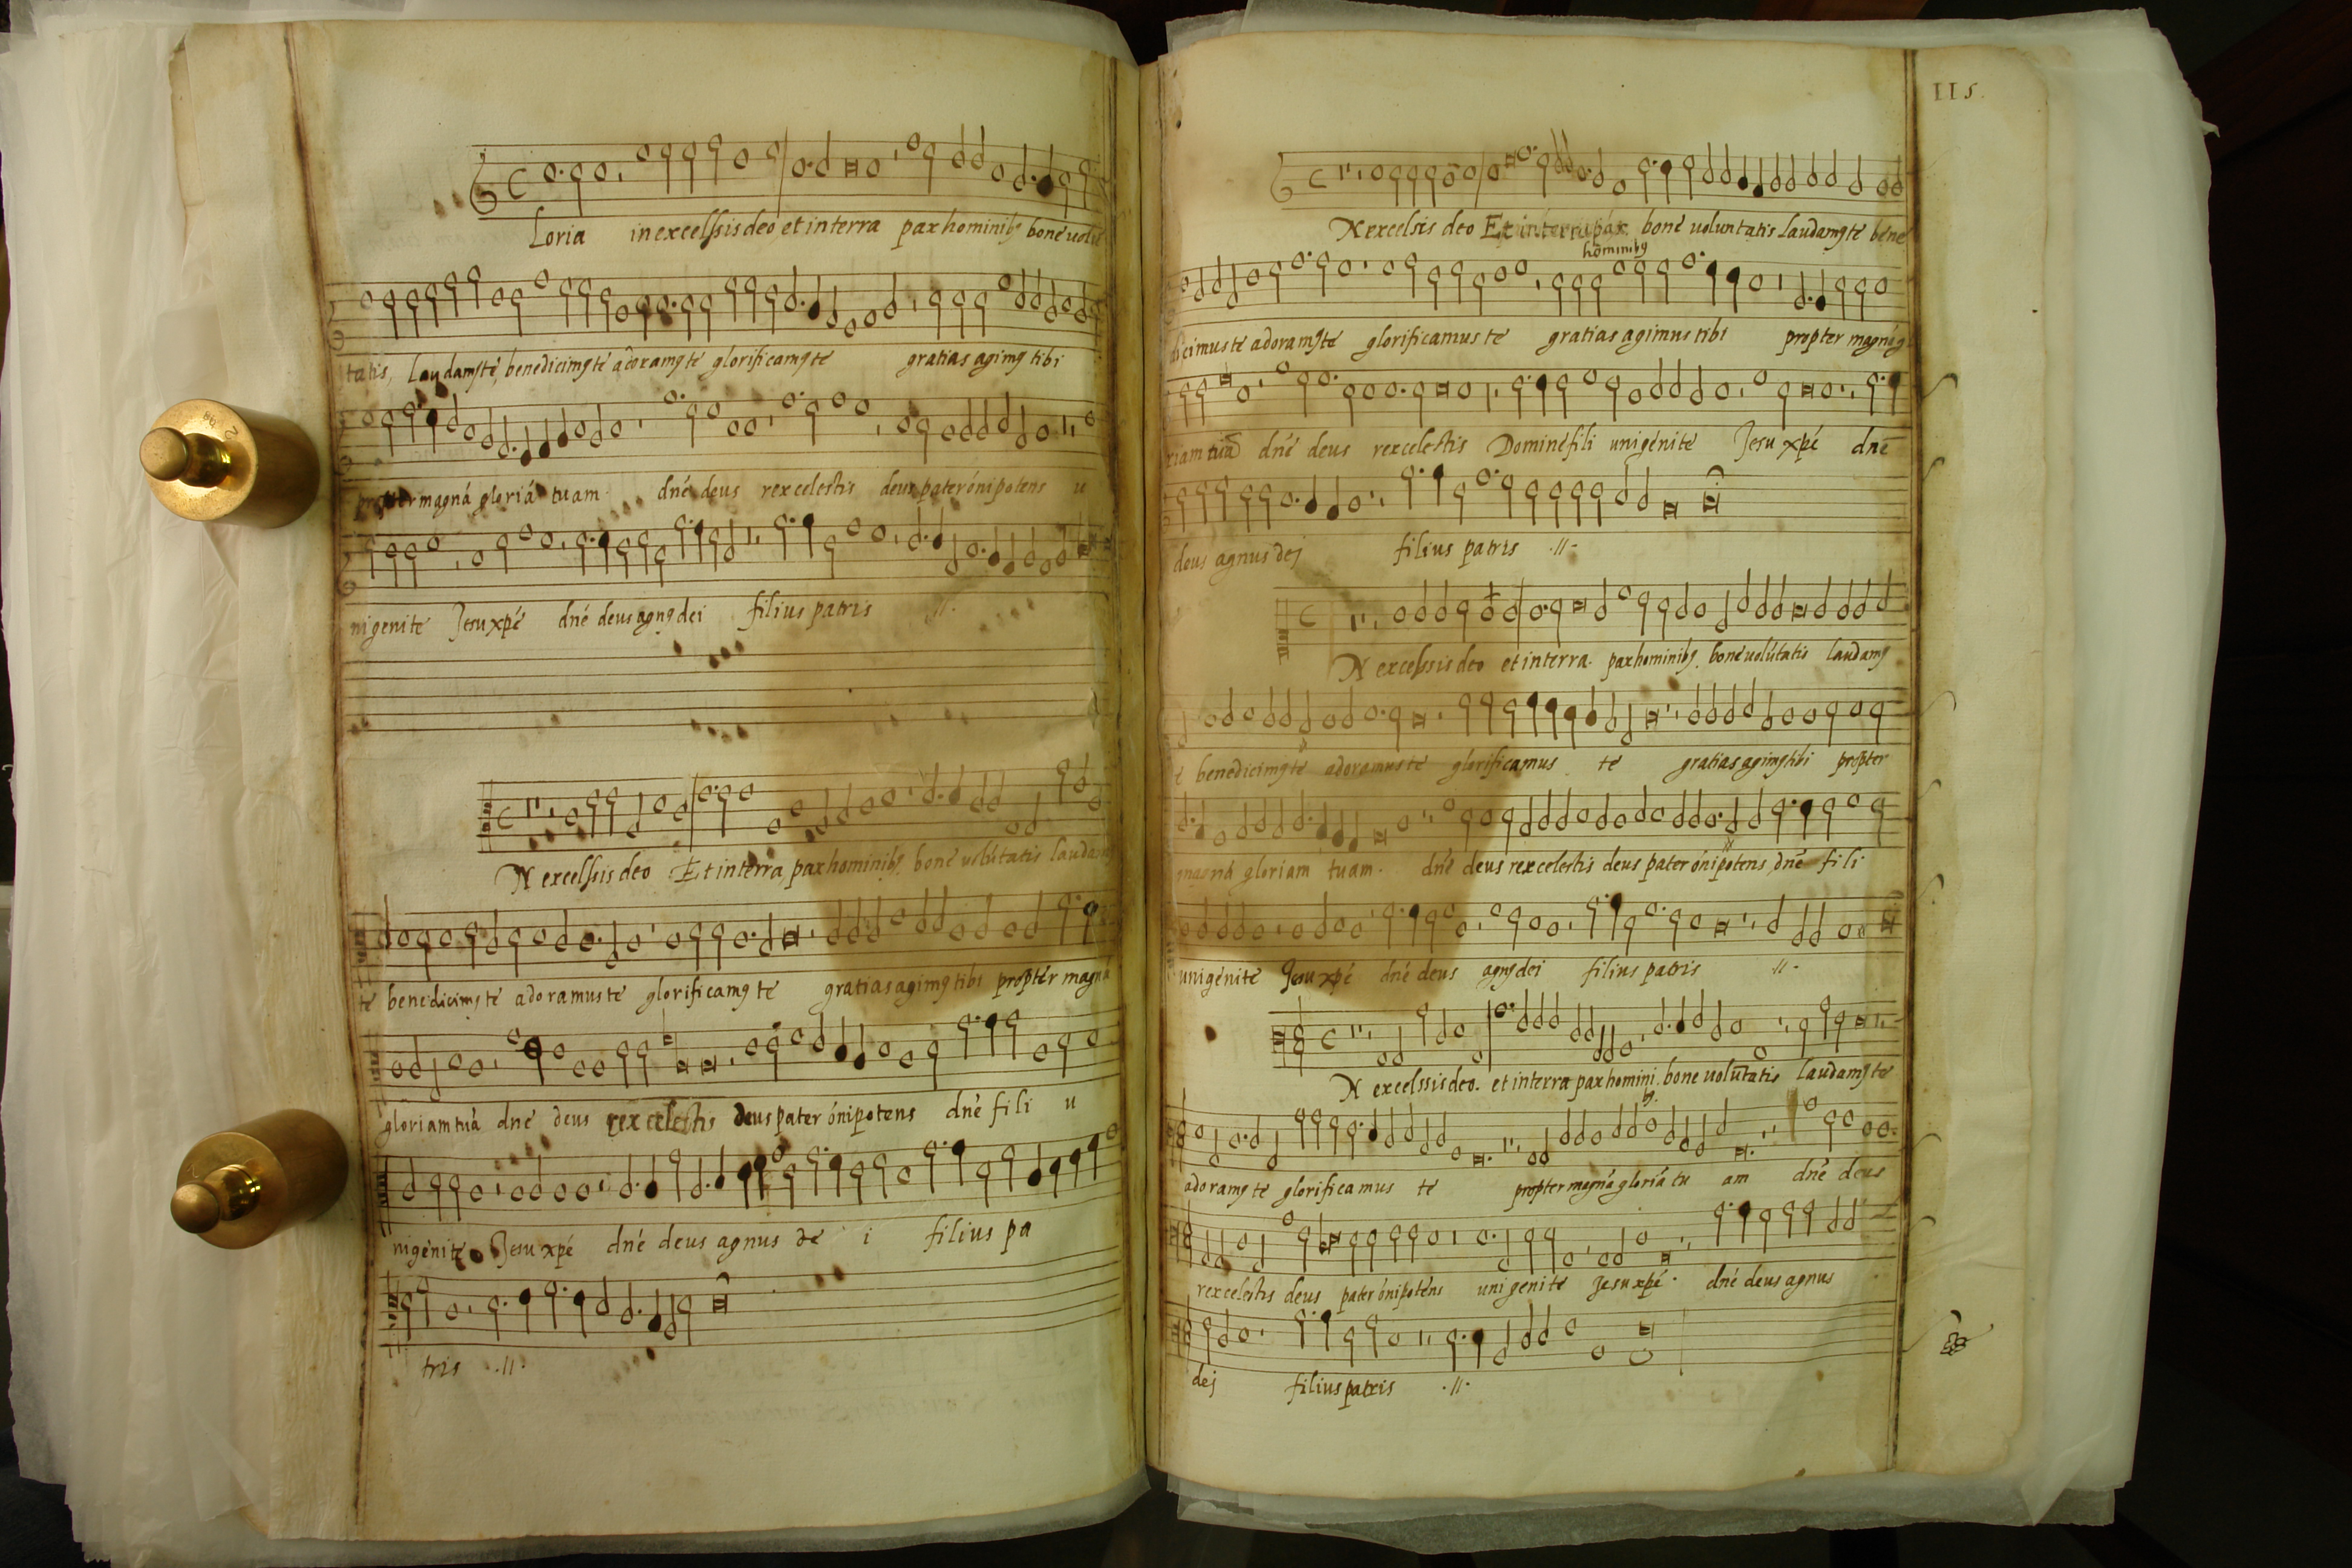 Loria in excelssis deo, et in terra pax hominibꝫ bone volū
tatis, laudamꝰ te, benedicimꝰ te adoramꝰ te glorificamꝰ te gratias agimꝰ tibi
propter magná gloriá tuam. dné deus rex celestis deus pater ónipotens u
nigenite Jesu xpé dné deus agnꝰ dei filius patris .//.
N excelssis deo Et in terra, pax hominibꝫ. boné volútatis laudam
te benedicimꝰ te adoramus te glorificamꝰ te gratias agimꝰ tibi propter magná
gloriam tuá dné deus rex celestis deus pater ónipotens dné fili u
nigénite Jesu xpé dné deus agnus de i filius pa
tris .//.
115.
N excelsis deo Et in terra pax boné voluntatis laudamꝰ te béne
hominibꝫ
dicimus te adoramꝰ te glorificamus te gratias agimus tibi propter magná g
riam tuā dné deus rex celestis Dominé fili unigénite Jesu xpé dné
deus agnus dej filius patris .//.
N excelssis deo et in terra. pax hominibꝫ. boné volútatis laudamꝰ
té benedicimꝰ te adoramus te glorificamus te gratias agimꝰ tibi propter
magná gloriam tuam. dné deus rex celestis deus pater ónipotens, dné fili
unigénite Jesu xpé dné deus agnꝰ dei filius patris .//.
N excelssis deo. et in terra pax homini. bone volūtatis laudamꝰ te
bꝫ.
adoramꝰ te glorificamus te propter magná gloriá tu am dné deus
rex celestis deus pater ónipoténs unigenite Jesu xpé. dné deus agnus
dej filius patris .//.